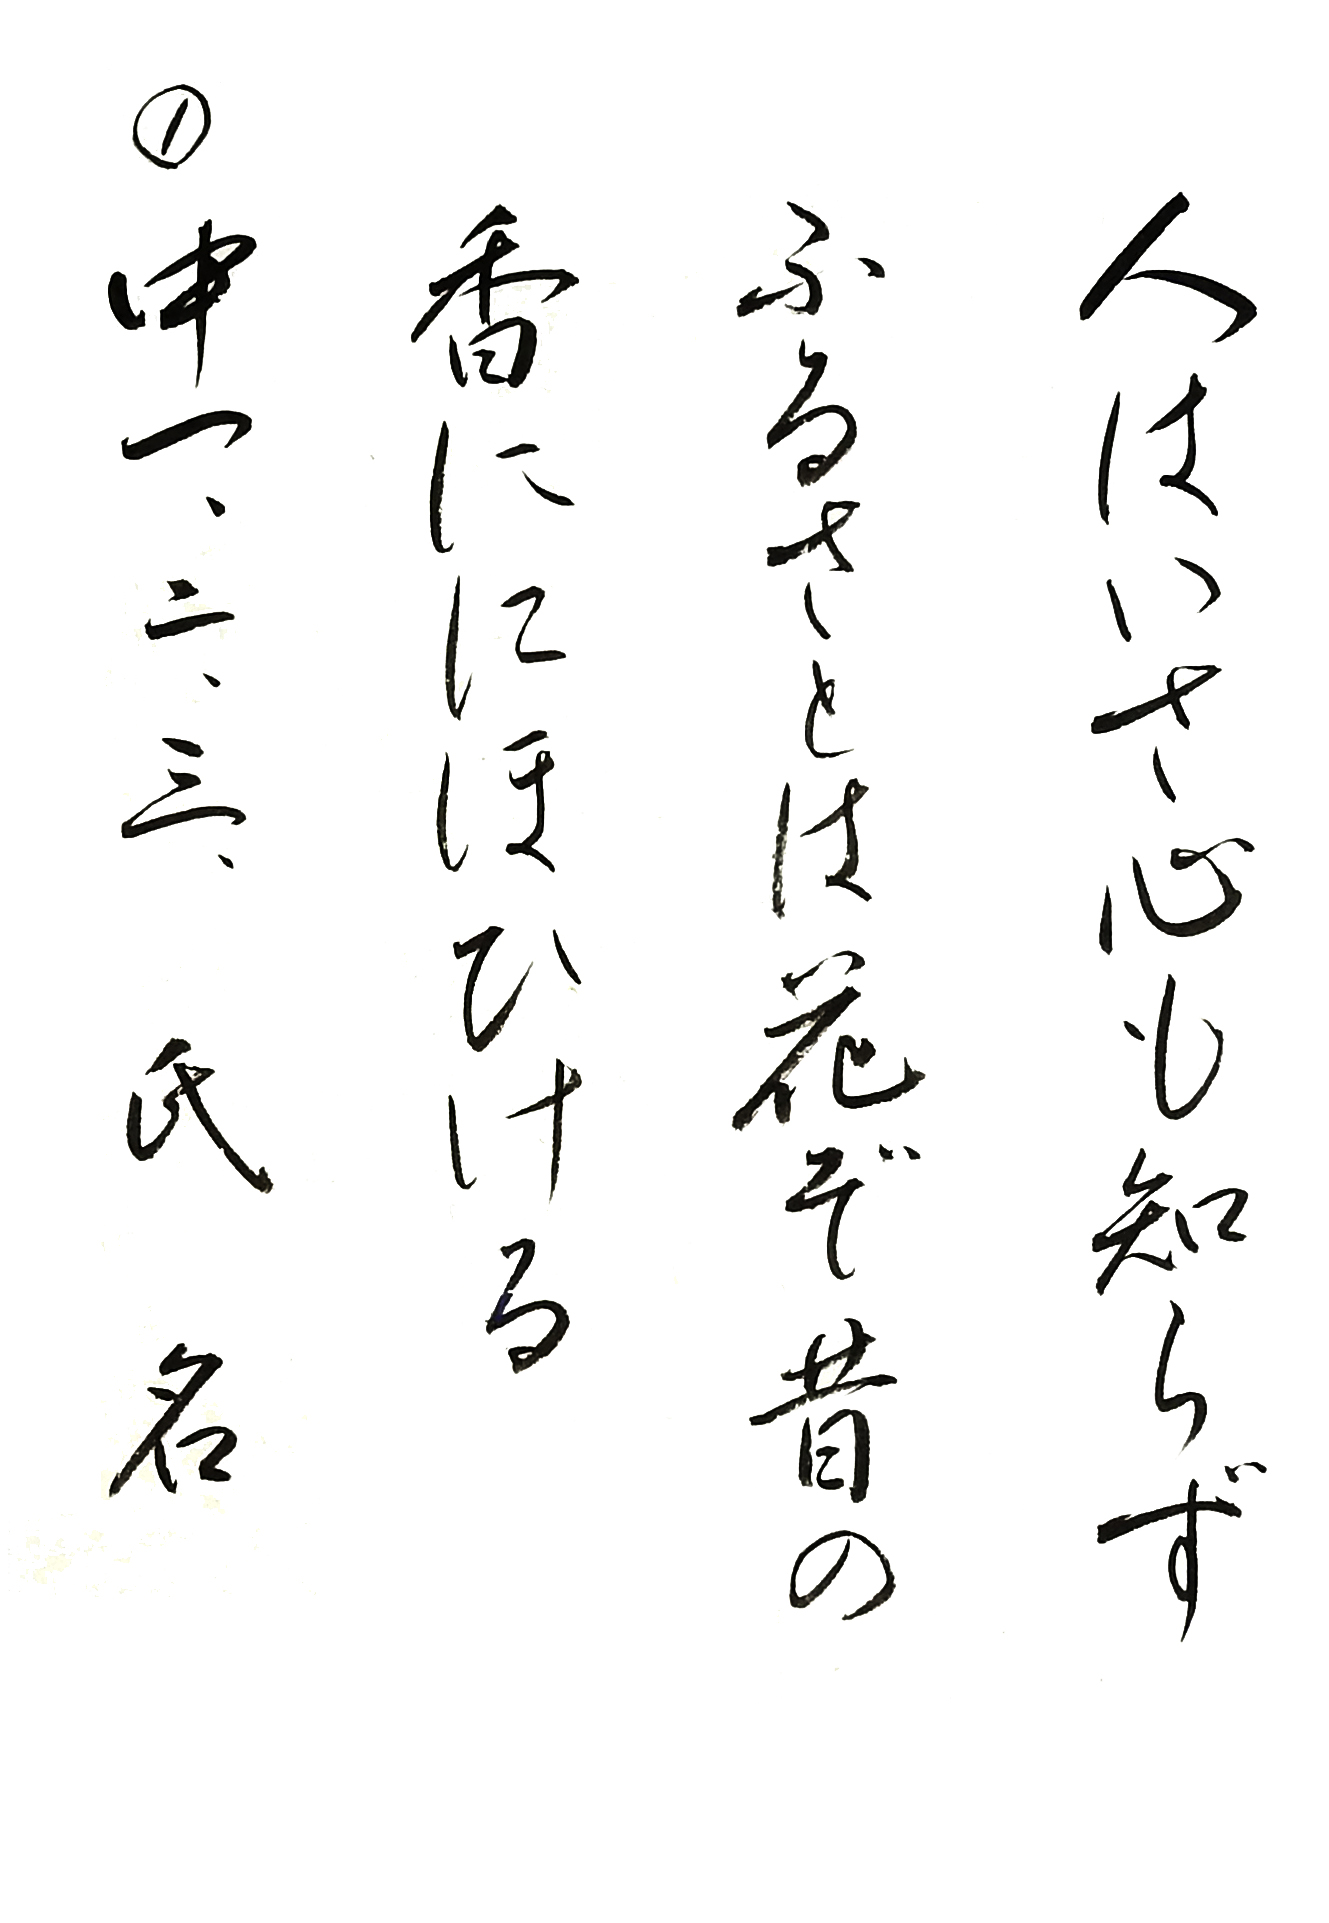 人はいさ心も知らず
ふるさとは花ぞ昔の
香ににほひける
①中一、二、三、 氏 名